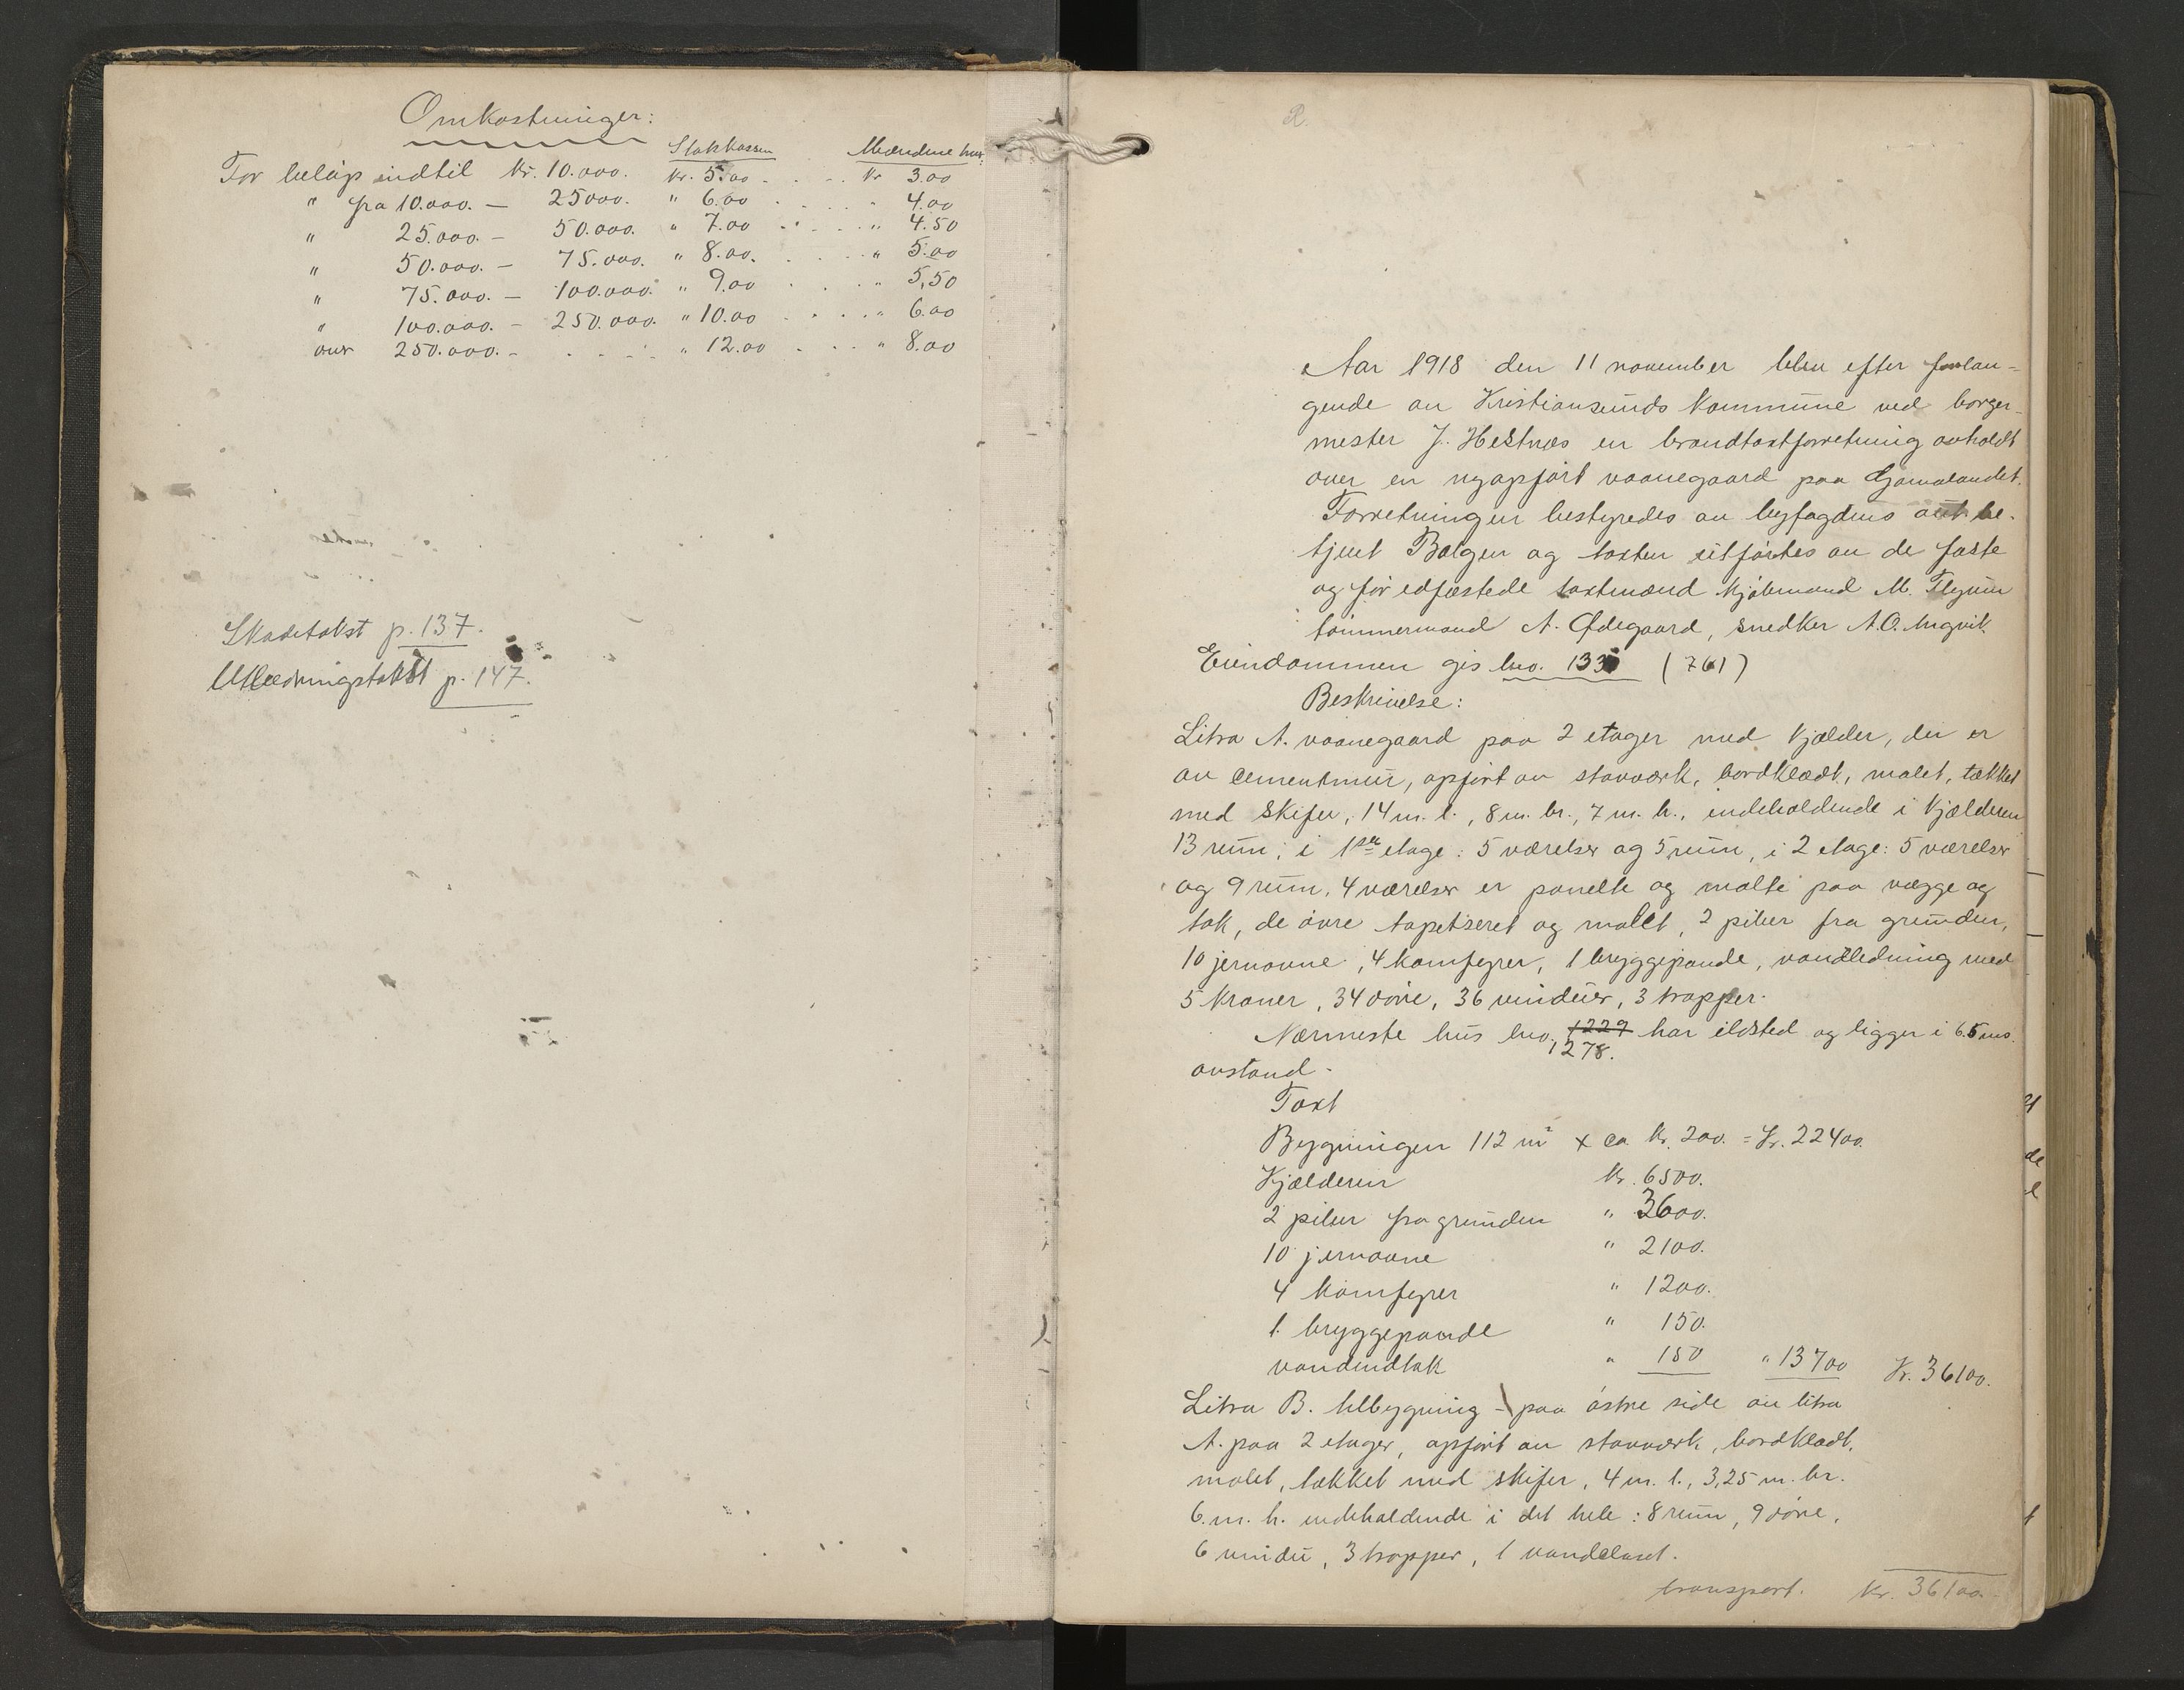 Omkostninger:
Statskassen Mændene hver
For beløp indtil Kr. 10.000. Kr. 5.00 . . . Kr 3.00
" fra 10.000. — 25000. " 6.00 . . . . " 4.00
" 25.000. — 50.000. " 7.00 . . . . " 4.50
" 50.000. — 75.000. " 8.00. . . . . " 5.00
" 75.000. — 100.000. " 9.00 . . . . " 5,50
" 100.000. — 250.000. " 10.00 . . . . " 6.00
over 250.000. - . . . . " 12.00 . . . " 8.00
Skadetakst p. 137.
Utledningstakst p. 147.
2.
Aar 1918 den 11 november blev efter forlan-
gende av Kristiansunds Kommune ved borger-
mester J. Hestnes en brandtaxtforretning avholdt
over en nyopført vaanegaard paa Gomalandet.
Forretningen bestyredes av byfogdens aut. be-
tjent Bolgen og taxten utførtes av de faste
og før edfæstede taxtmænd kjøbmand M. Flygum
tømmermand A. Ødegaard, snedker A.O. Angvik.
Eiendommen gis bno. 133 (761)
Beskrivelse:
Litra A. vaanegaard paa 2 etager med kjælder, der er
av cementmur, opført av stavværk, bordklædt, malet, tækket
med skifer, 14 m. l., 8 m. br., 7 m. h., indeholdende i kjælderen
13 rum, i 1ste etage: 5 værelser og 5 rum, i 2 etage: 5 værelser
og 9 rum, 4 værelser er panelte og malte paa vægge og
tak, de øvre tapetseret og malet, 2 piber fra grunden,
10 jernovne, 4 komfyrer, 1 bryggepande, vandledning med
5 kraner, 34 døre, 36 vinduer, 3 trapper.
Nærmeste hus bno. 1229 har ildsted og ligger i 6.5 ms.
1278.
avstand.
Taxt
Bygningen 112 m² x ca. Kr. 200. = Kr. 22400.
Kjælderen Kr. 6500.
2 piber fra grunden " 3600.
10 jernovne " 2100.
4 komfyrer " 1200.
1. bryggepande " 150.
vandindtak " 150 " 13700 Kr. 36100.
Litra B. tilbygning - paa østre side av litra
A. paa 2 etager, opført av stavværk, bordklædt,
malet, tækket med skifer, 4 m. l., 3,25 m. br.
6. m. h. indeholdende i det hele: 8 rum, 9 døre,
6 vindu, 3 trapper, 1 vandcloset.
transport. Kr. 36100.